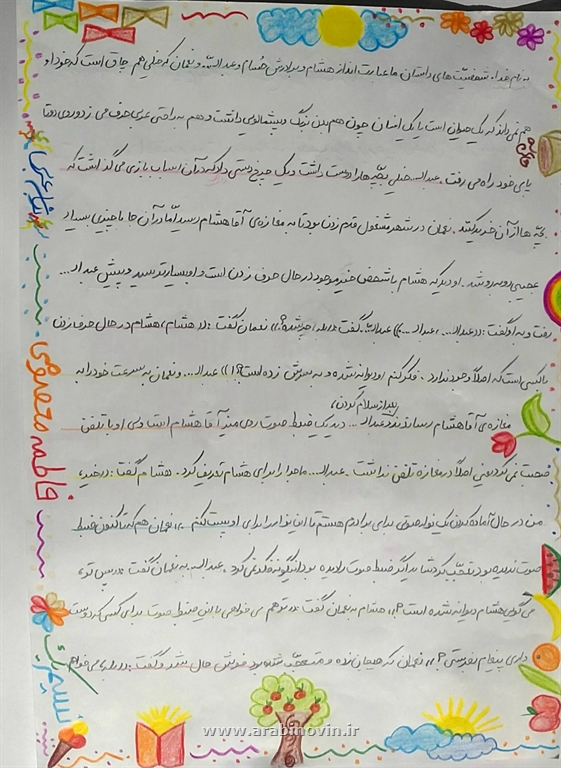 به نام خدا. شخصیّت های داستان ما عبارت اند از هشام و برادرش حُسام و عبدالله. و نعمان که خیلی هم چاق است که خود او
هم نمی داند که یک حیوان است یا یک انسان چون هم بدن بزرگ و پشمالویی داشت و هم به راحتی عربی حرف می زد و روی دو تا
پای خود راه می رفت. عبدالله خیلی بچّه ها را دوست داشت و یک چرخ دستی داد که در آن اسباب بازی می گذاشت که
بچّه ها از آن خرید کنند. نعمان در شهر مشغول قدم زدن بود تا به مغازه ی آقا هشام رسید امّا در آن جا با چیزی بسیار
عجیبی روبه رو شد. او دید که هشام با شخص غیر موجود در حال حرف زدن است و او بسیار ترسید و پیش عبدالله
رفت و به او گفت: عبدالله... عبدالله...)) عبدالله گفت: بله، چه شده؟)) نعمان گفت: هشام، هشام در حال حرف زدن
با کسی است که اصلاً وجود ندارد. فکر کنم او دیوانه شده و به سرش زده است؟!)) عبدالله و نعمان به سرعت خود را به
بعد از سلام کردن،
مغازه ی آقا هشام رساندند و عبدالله دید یک ضبط صوت روی میز آقا هشام است ولی او با تلفن
صحبت نمی کرد یعنی اصلاً در مغازه تلفن نداشت. عبدالله ماجرا را برای هشام تعریف کرد. هشام گفت: نه خیر،
من در حال آماده کردن یک نوار صوتی برای برادرم هستم تا این نوار را برای او پست کنم.)) نعمان هم که تا کنون ضبط
صوت ندیده بود تعجّب کرد شاید اگر ضبط صوت را دیده بود این گونه فکر نمی کرد. عبدالله به نعمان گفت: پس تو،
می گویی هشام دیوانه شده است؟)) هشام به نعمان گفت: تو هم می خواهی با این ضبط صوت برای کسی که دوست
داری پیغام بفرستی؟)) نعمان که هیجان زده و متعجّب شده بود خوش حال شد و گفت: بله می خواهم
فاطمه معصومی
www.arabinovin.ir